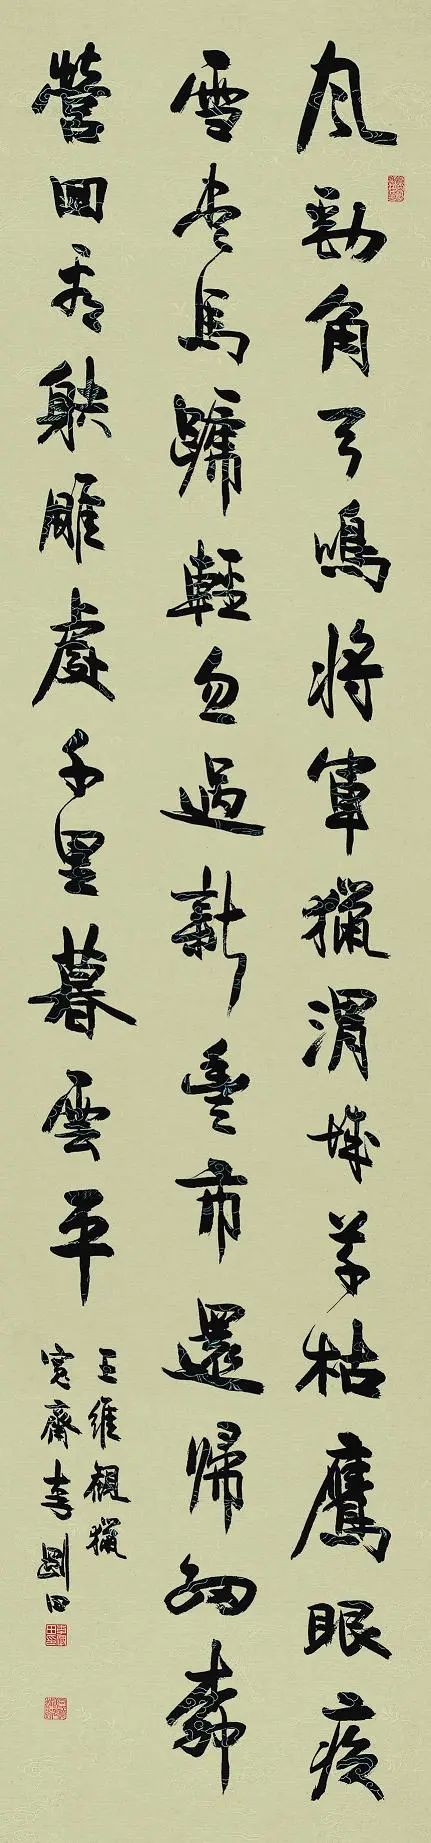 風勁角弓鳴將軍獵渭城草枯鷹眼疾
雪尽馬蹏輕忽過新豐市還歸細柳
營回看射雕處千里暮雲平
王維觀獵
寬齋李剛田